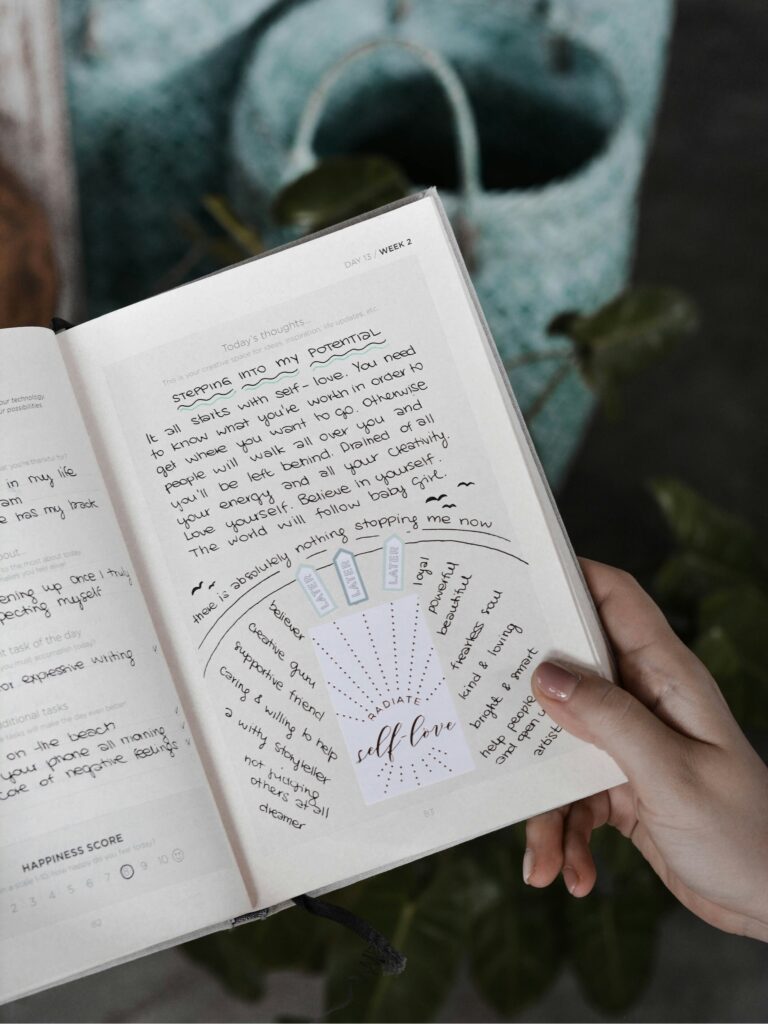 our technology
our possibilities.
what you're thankful for?
in my life
am
e has my back
about...
to the most about today
ening up once I truly
pecting myself
t task of the day
you must accomplish today?
or expressive writing
ditional tasks
tasks will make the day even better!
on the beach
your phone all morning
care of negative feelings
HAPPINESS SCORE
n a scale 1-10, how happy do you feel today?
2 3 4 5 6 7 8 9 10
82
DAY 13 / WEEK 2
Today's thoughts...
This is your creative space for ideas, inspiration, life updates, etc.
STEPPING INTO MY POTENTIAL
It all starts with self-love. You need
to know what you're worth in order to
get where you want to go. Otherwise
people will walk all over you and
you'll be left behind. Drained of all
your energy and all your creativity.
Love yourself. Believe in yourself.
The world will follow baby girl.
there is absolutely nothing stopping me now
LATER
LATER
LATER
believer
creative guru
supportive friend
caring & willing to help
a witty storyteller
not judging
others at all
dreamer
RADIATE
self-love
loyal
powerful
beautiful
fearless soul
kind & loving
bright & smart
help people
and open u
artist
83